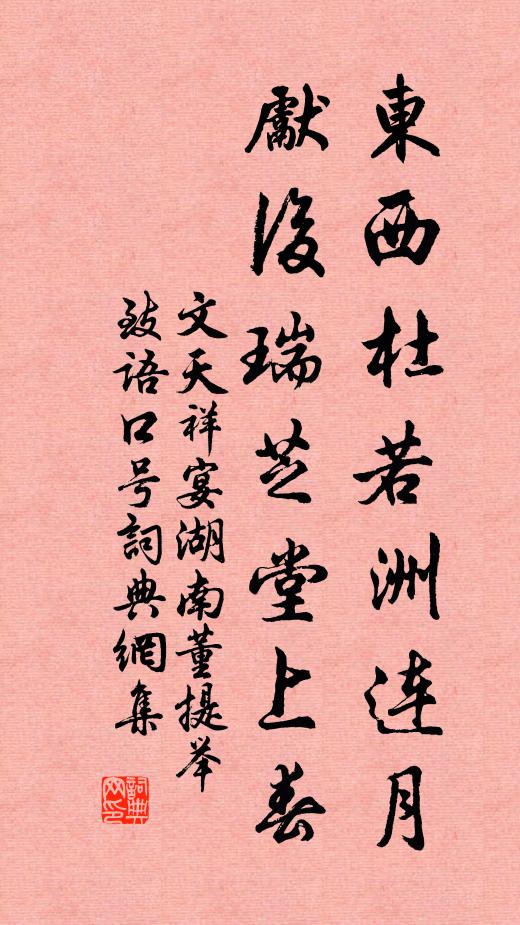 東西杜若洲连月
獻後瑞芝堂上春
文天祥宴湖南董提举
致语口号詞典網集
詞典网印